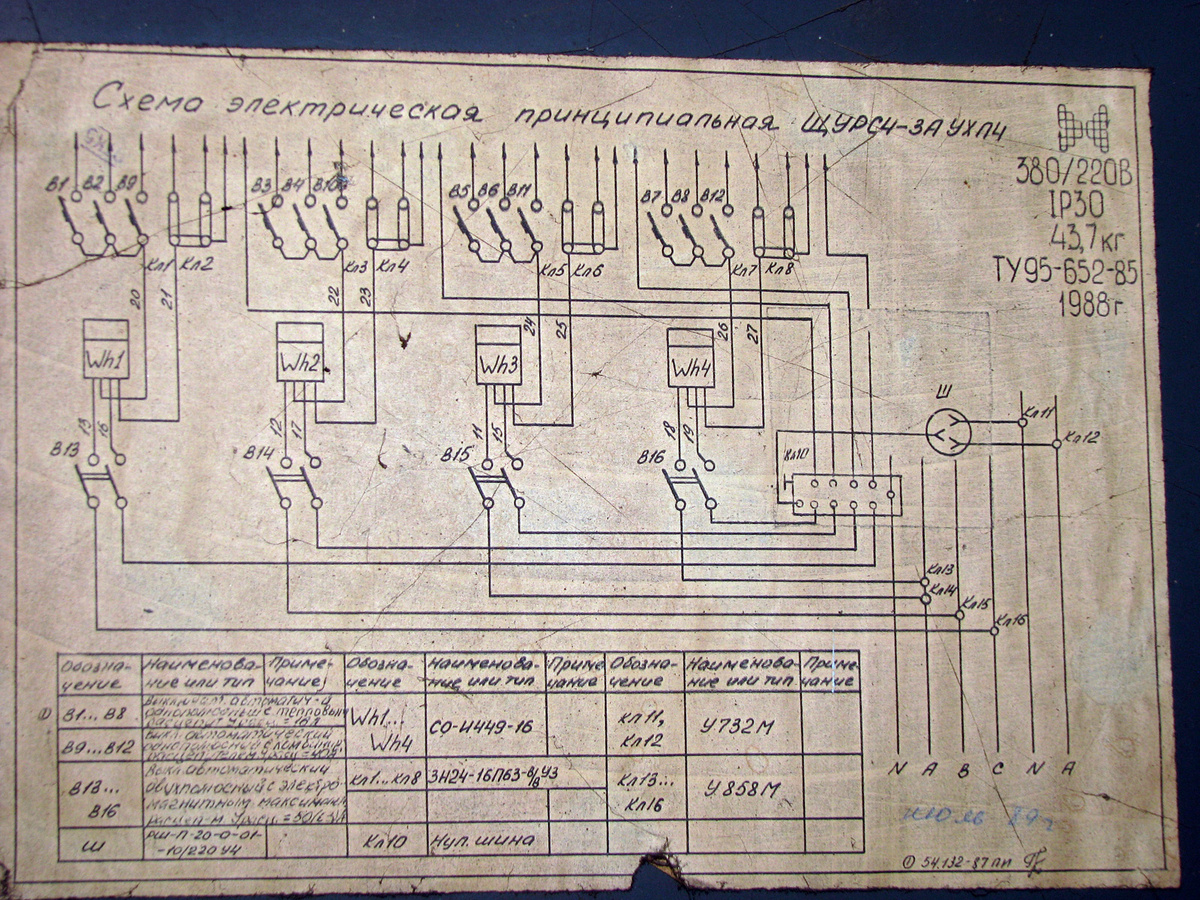 Схема электрическая принципиальная ЩУРС4-3А УХЛ4
380/220В
IP30
43,7кг
ТУ95-652-85
1988г.
В1 В2 В9
В3 В4 В10
В5 В6 В11
В7 В8 В12
Кл1 Кл2
Кл3 Кл4
Кл5 Кл6
Кл7 Кл8
20 21
22 23
24 25
26 27
Wh1
Wh2
Wh3
Wh4
Ш
Кл11
Кл12
13 16
12 17
11 15
18 19
В13
В14
В15
В16
Кл10
Кл13
Кл14
Кл15
Кл16
N A B C N A
Обозна-
чение
Наименова-
ние или тип
Приме-
чание
Обозна-
чение
Наименова-
ние или тип
Приме-
чание
Обозна-
чение
Наименова-
ние или тип
Приме-
чание
① В1...В8
Выключат. автоматич-й
однополюсный с тепловым
В9...В12
Выкл. автоматический
В13...
В16
Выкл. автоматический
двухполюсный с электро-
магнитным максимальн.
Ш
РШ-П-20-0-01-
-10/220 У4
Wh1...
Wh4
СО-И449-16
Кл1...Кл8
ЗН24-16П63-В/В У3
Кл10
Нул. шина
Кл11,
Кл12
У732М
Кл13...
Кл16
У858М
июль 89г
① 54.132-87 ПИ